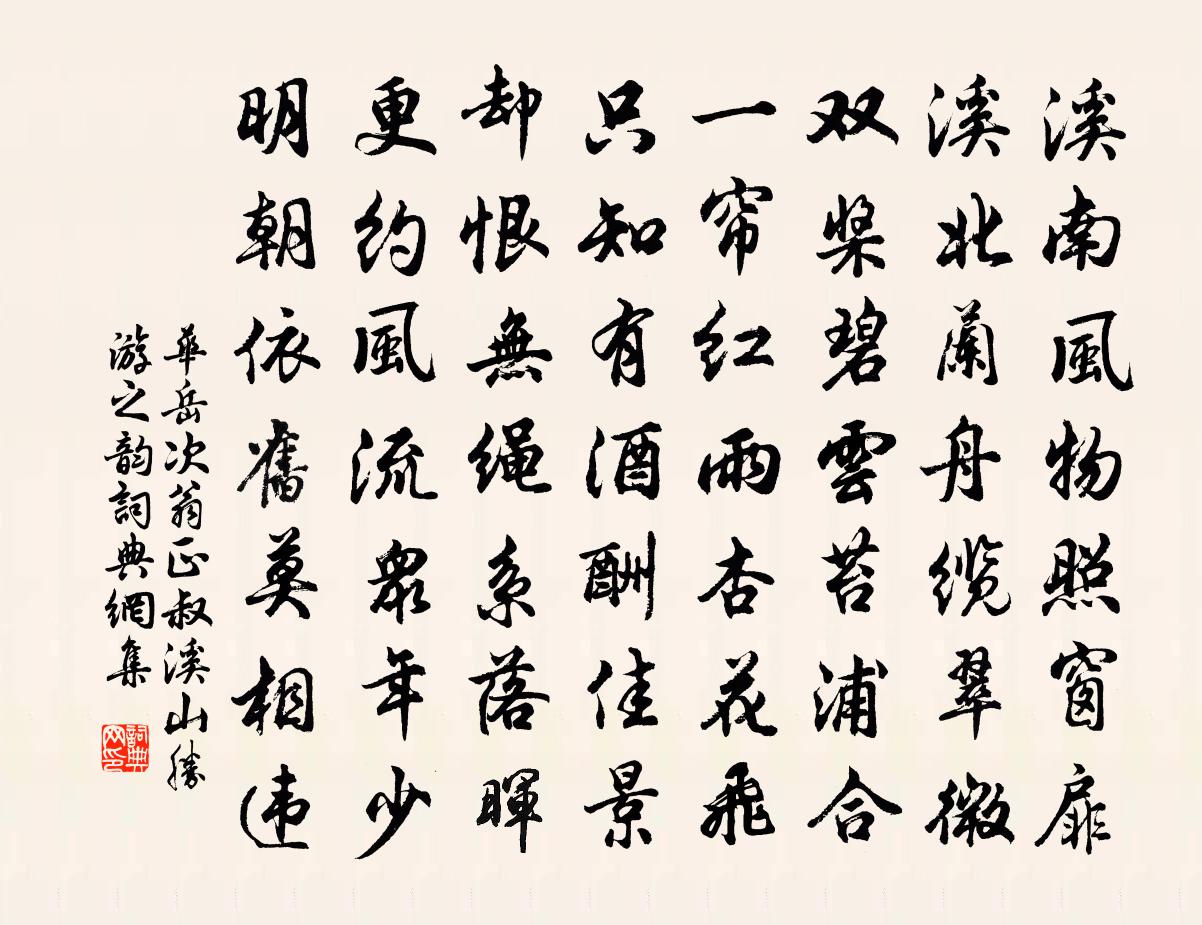 溪南風物照窗扉
溪北蘭舟缆翠微
双桨碧雲苔浦合
一帘红雨杏花飛
只知有酒酬佳景
却恨無绳系落暉
更约風流衆年少
明朝依舊莫相违
華岳次翁正叔溪山勝
游之韵詞典網集
詞典网印